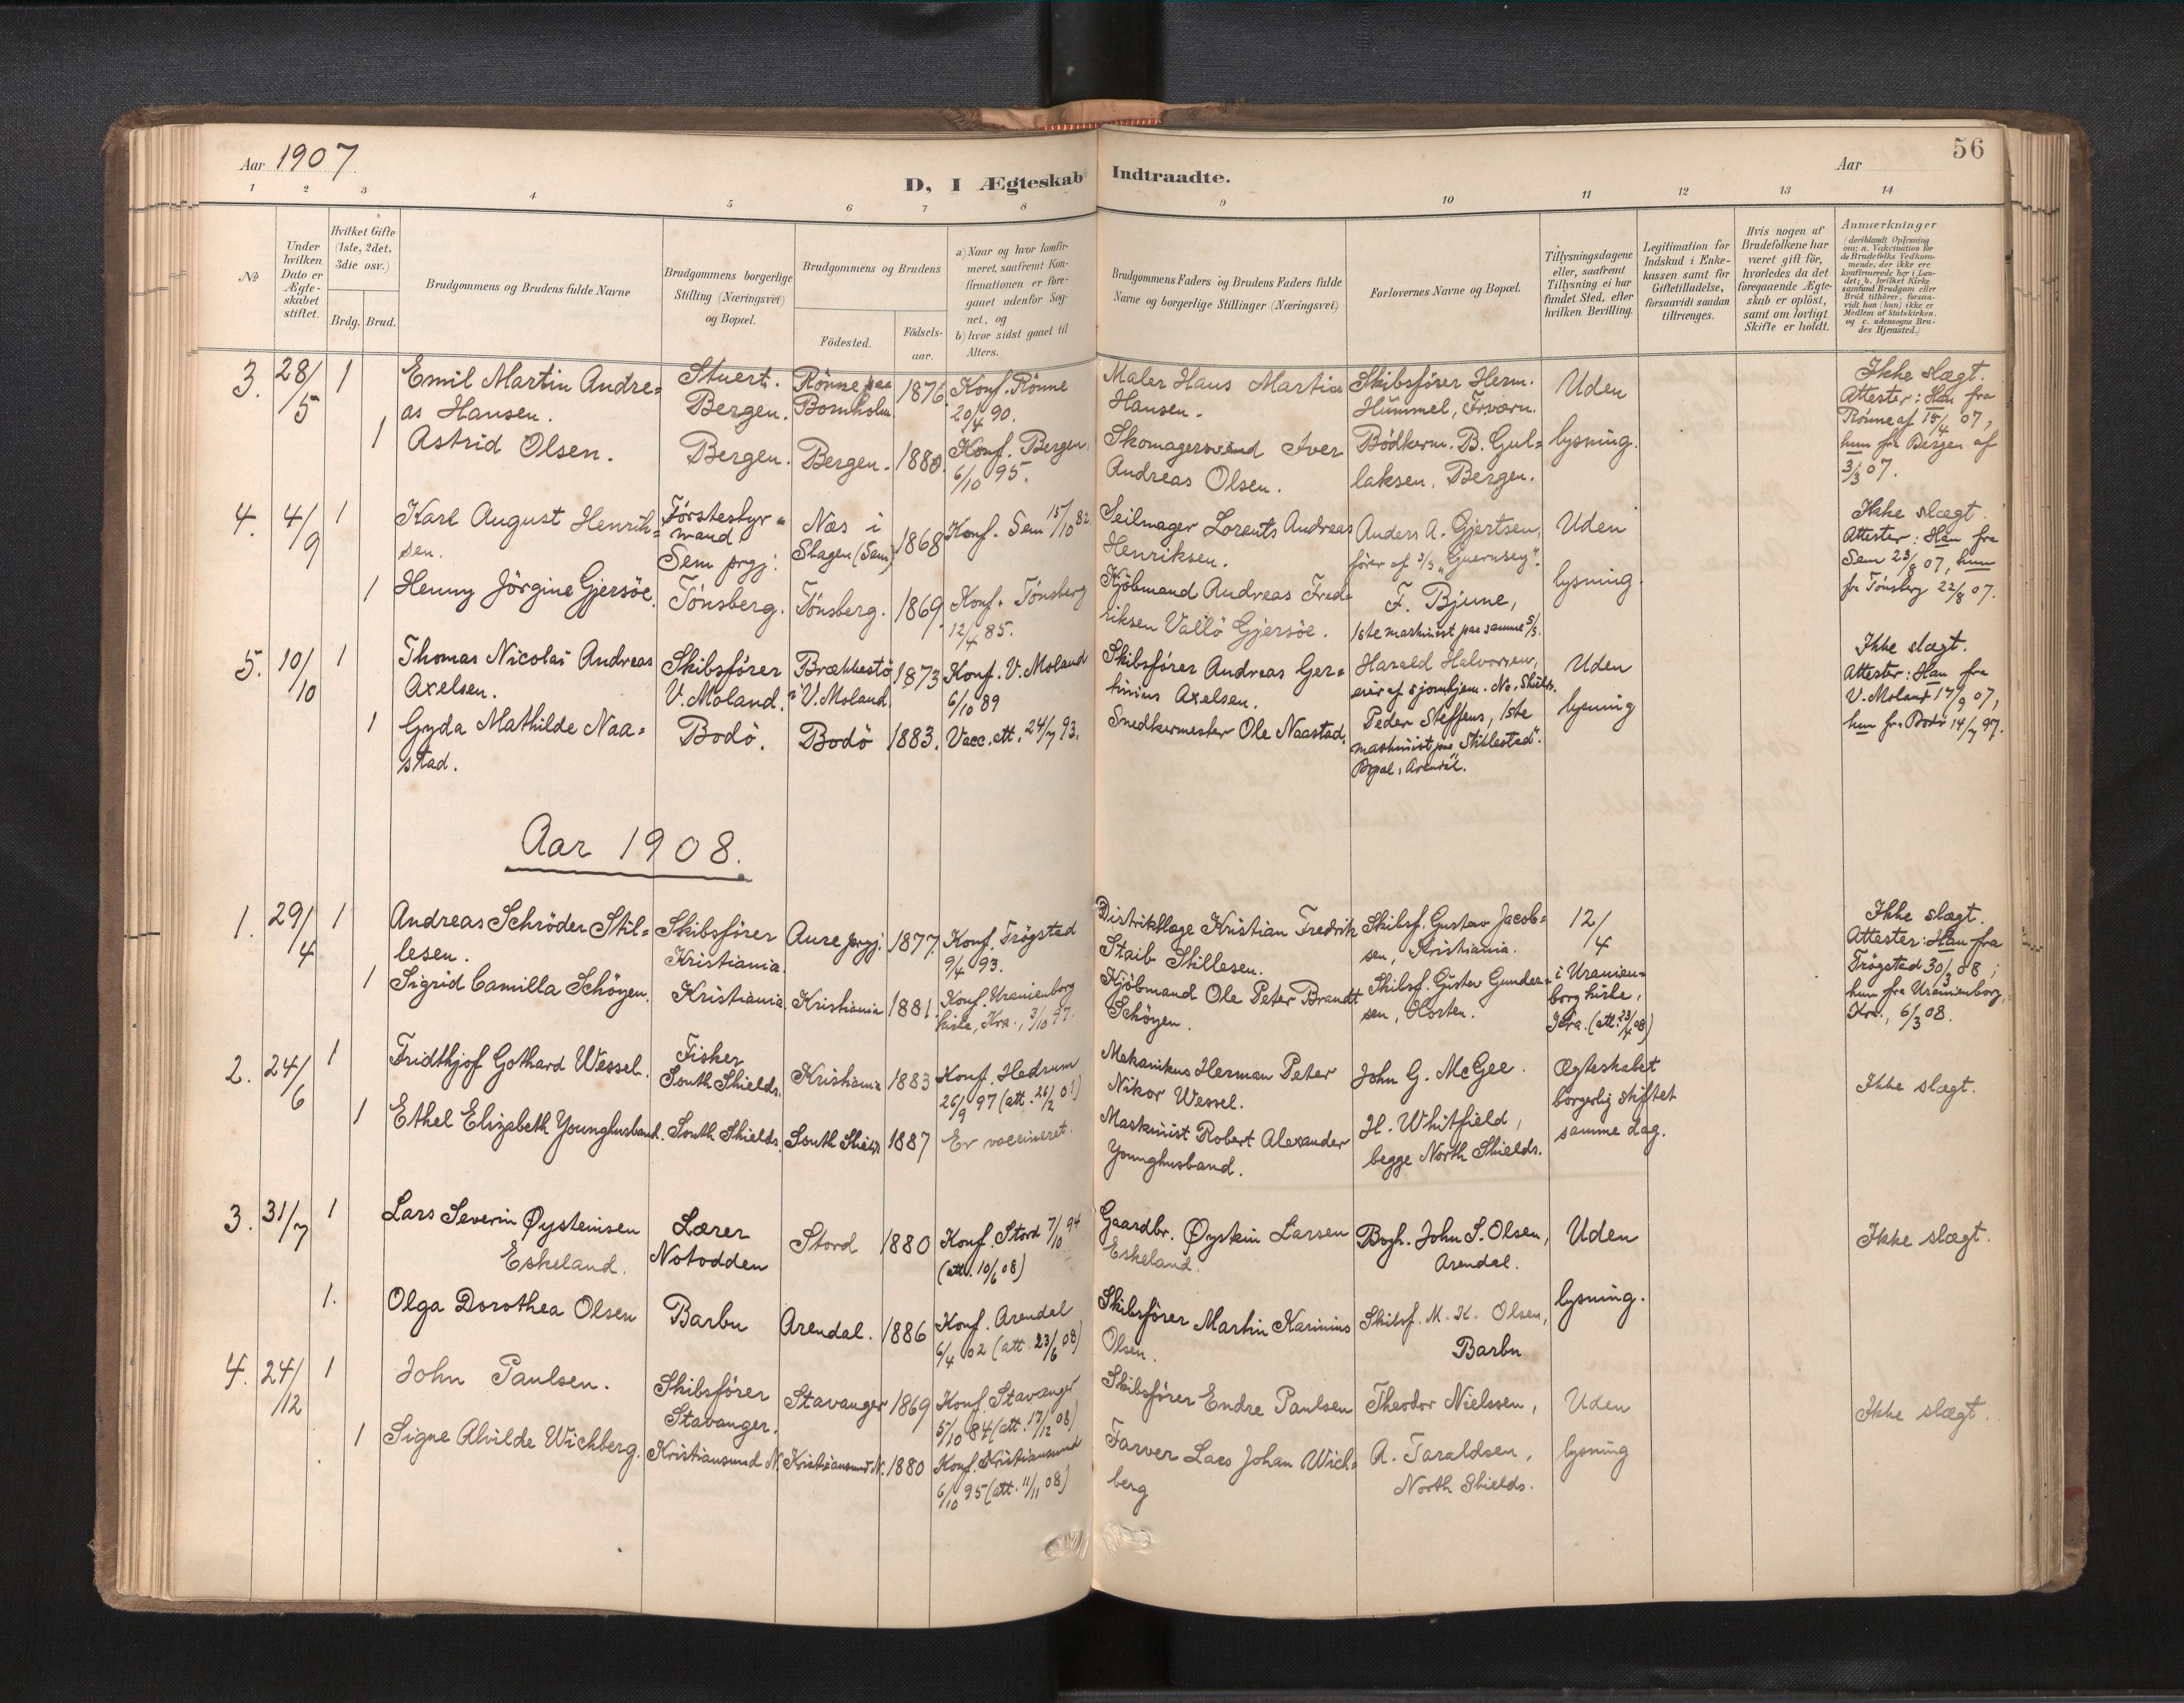 Aar 1907
D, I Ægteskab Indtraadte.
Aar
56
1 2 3 4 5 6 7 8 9 10 11 12 13 14
No
Under hvilken Dato er Ægte-skabet stiftet.
Hvilket Gifte (1ste, 2det, 3die osv.)
Brdg. Brud.
Brudgommens og Brudens fulde Navne
Brudgommens borgerlige Stilling (Næringsvei) og Bopæl.
Brudgommens og Brudens
Fødested.
Fødsels-aar.
a) Naar og hvor konfir-meret, saafremt Kon-firmationen er fore-gaaet udenfor Sog-net, og
b) hvor sidst gaaet til Alters.
Brudgommens Faders og Brudens Faders fulde Navne og borgerlige Stillinger (Næringsvei)
Forlovernes Navne og Bopæl.
Tillysningsdagene eller, saafremt Tillysning ei har fundet Sted, efter hvilken Bevilling.
Legitimation for Indskud i Enke-kassen samt for Giftetilladelse, forsaavidt saadan tiltrænges.
Hvis nogen af Brudefolkene har været gift før, hvorledes da det foregaaende Ægte-skab er opløst, samt om lovligt Skifte er holdt.
Anmærkninger
(deriblandt Oplysning om: a. Vakcination for de Brudefolks Vedkom-mende, der ikke ere konfirmerede her i Lan-det; b. hvilket Kirke-samfund Brudgom eller Brud tilhører, forsaa-vidt han (hun) ikke er Medlem af Statskirken, og c. udensogns Bru-des Hjemsted.)
3. 28/5 1 Emil Martin Andre=as Hansen. Stuert. Bergen. Rönne paa Bornholm 1876. Konf. Rönne 20/4 90. Maler Hans Martin Hansen. Skibsfører Herm. Hümmel, Uden Ikke slægt. Attester: Han fra Rönne af 15/4 07, hun fra Bergen af 3/3 07.
1 Astrid Olsen. Bergen. Bergen. 1880. Konf. Bergen 6/10 95. Skomagersvend Iver Andreas Olsen. Bödkerm. B. Gul=laksen, Bergen. lysning.
4. 4/9 1 Karl August Henrik=sen. Førstestyr=mand Sem prgj. Næs i Slagen (Sem) 1868 Konf. Sem 15/10 82. Seilmager Lorents Andreas Henriksen. Anders A. Gjertsen, fører af S/S "Guernsey". Uden Ikke slægt. Attester: Han fra Sem 23/8 07, hun fra Tønsberg 22/8 07.
1 Henny Jörgine Gjersöe. Tönsberg. Tönsberg. 1869. Konf. Tönsberg 12/4 85. Kjöbmand Andreas Fred=riksen Vallö Gjersöe. F. Bjune, 1ste maskinist paa samme S/S. lysning.
5. 10/10 1 Thomas Nicolai Andreas Axelsen. Skibsfører V. Moland. Brækkestö i V. Moland. 1873 Konf. V. Moland 6/10 89 Skibsfører Andreas Ger=tinius Axelsen. Harald Halvorsen, eier af sjømhjem. No. Shilds. Uden Ikke slægt. Attester: Han fra V. Moland 17/9 07, hun fra Bodö 14/7 97.
1 Gyda Mathilde Naa=stad. Bodö. Bodö 1883. Vacc. att. 24/7 93. Snedkermester Ole Naastad. Peder Steffens, 1ste maskinist paa "Stiklestad". Bopæl, Arendal. lysning
Aar 1908.
1. 29/4 1 Andreas Schröder Stil=lesen. Skibsfører Kristiania. Aure prgj. 1877. Konf. Trögstad 9/4 93. Distriktlæge Kristian Fredrik Staib Stillesen. Skibsf. Gustav Jacob=sen, Kristiania. 12/4 Ikke slægt. Attester: Han fra Trögstad 30/3 08; hun fra Uranienborg, Kra., 6/3 08.
1 Sigrid Camilla Schöyen. Kristiania Kristiania 1881. Konf. Uranienborg kirke, Kra., 3/10 97. Kjöbmand Ole Peter Brandt Schöyen. Skibsf. Gustav Gunder=sen, Horten. i Uranien=borg kirke, Kra. (att. 23/4 08)
2. 24/6 1 Fridthjof Gothard Wessel. Fisker South Shields. Kristiania 1883 Konf. Hedrum 26/9 97 (att. 26/2 01) Mekanikus Herman Peter Nikor Wessel. John G. McGee. Ægteskabet borgerlig stiftet samme dag. Ikke slægt.
1 Ethel Elizabeth Younghusband. South Shields. South Shields 1887 Er vaccineret. Maskinist Robert Alexander Younghusband. H. Whitfield, begge North Shields.
3. 31/7 1 Lars Severin Øysteinsen Eskeland. Lærer Notodden Stord 1880 Konf. Stord 7/10 94 (att. 10/6 08) Gaardbr. Øystein Larsen Eskeland. Bogh. John S. Olsen, Arendal. Uden Ikke slægt.
1. Olga Dorothea Olsen Barbu Arendal. 1886 Konf. Arendal 6/4 02 (att. 23/6 08) Skibsfører Martin Karinius Olsen. Skibsf. M. K. Olsen, Barbu lysning.
4. 24/12 1 John Paulsen. Skibsfører Stavanger. Stavanger 1869 Konf. Stavanger 5/10 84 (att. 17/12 08) Skibsfører Endre Paulsen Theodor Nielssen, Uden Ikke slægt.
1 Signe Alvilde Wichberg. Kristiansund N. Kristiansund N. 1880 Konf. Kristiansund 6/10 95 (att. 11/11 08) Farver Lars Johan Wich=berg A. Taraldsen, North Shields. lysning